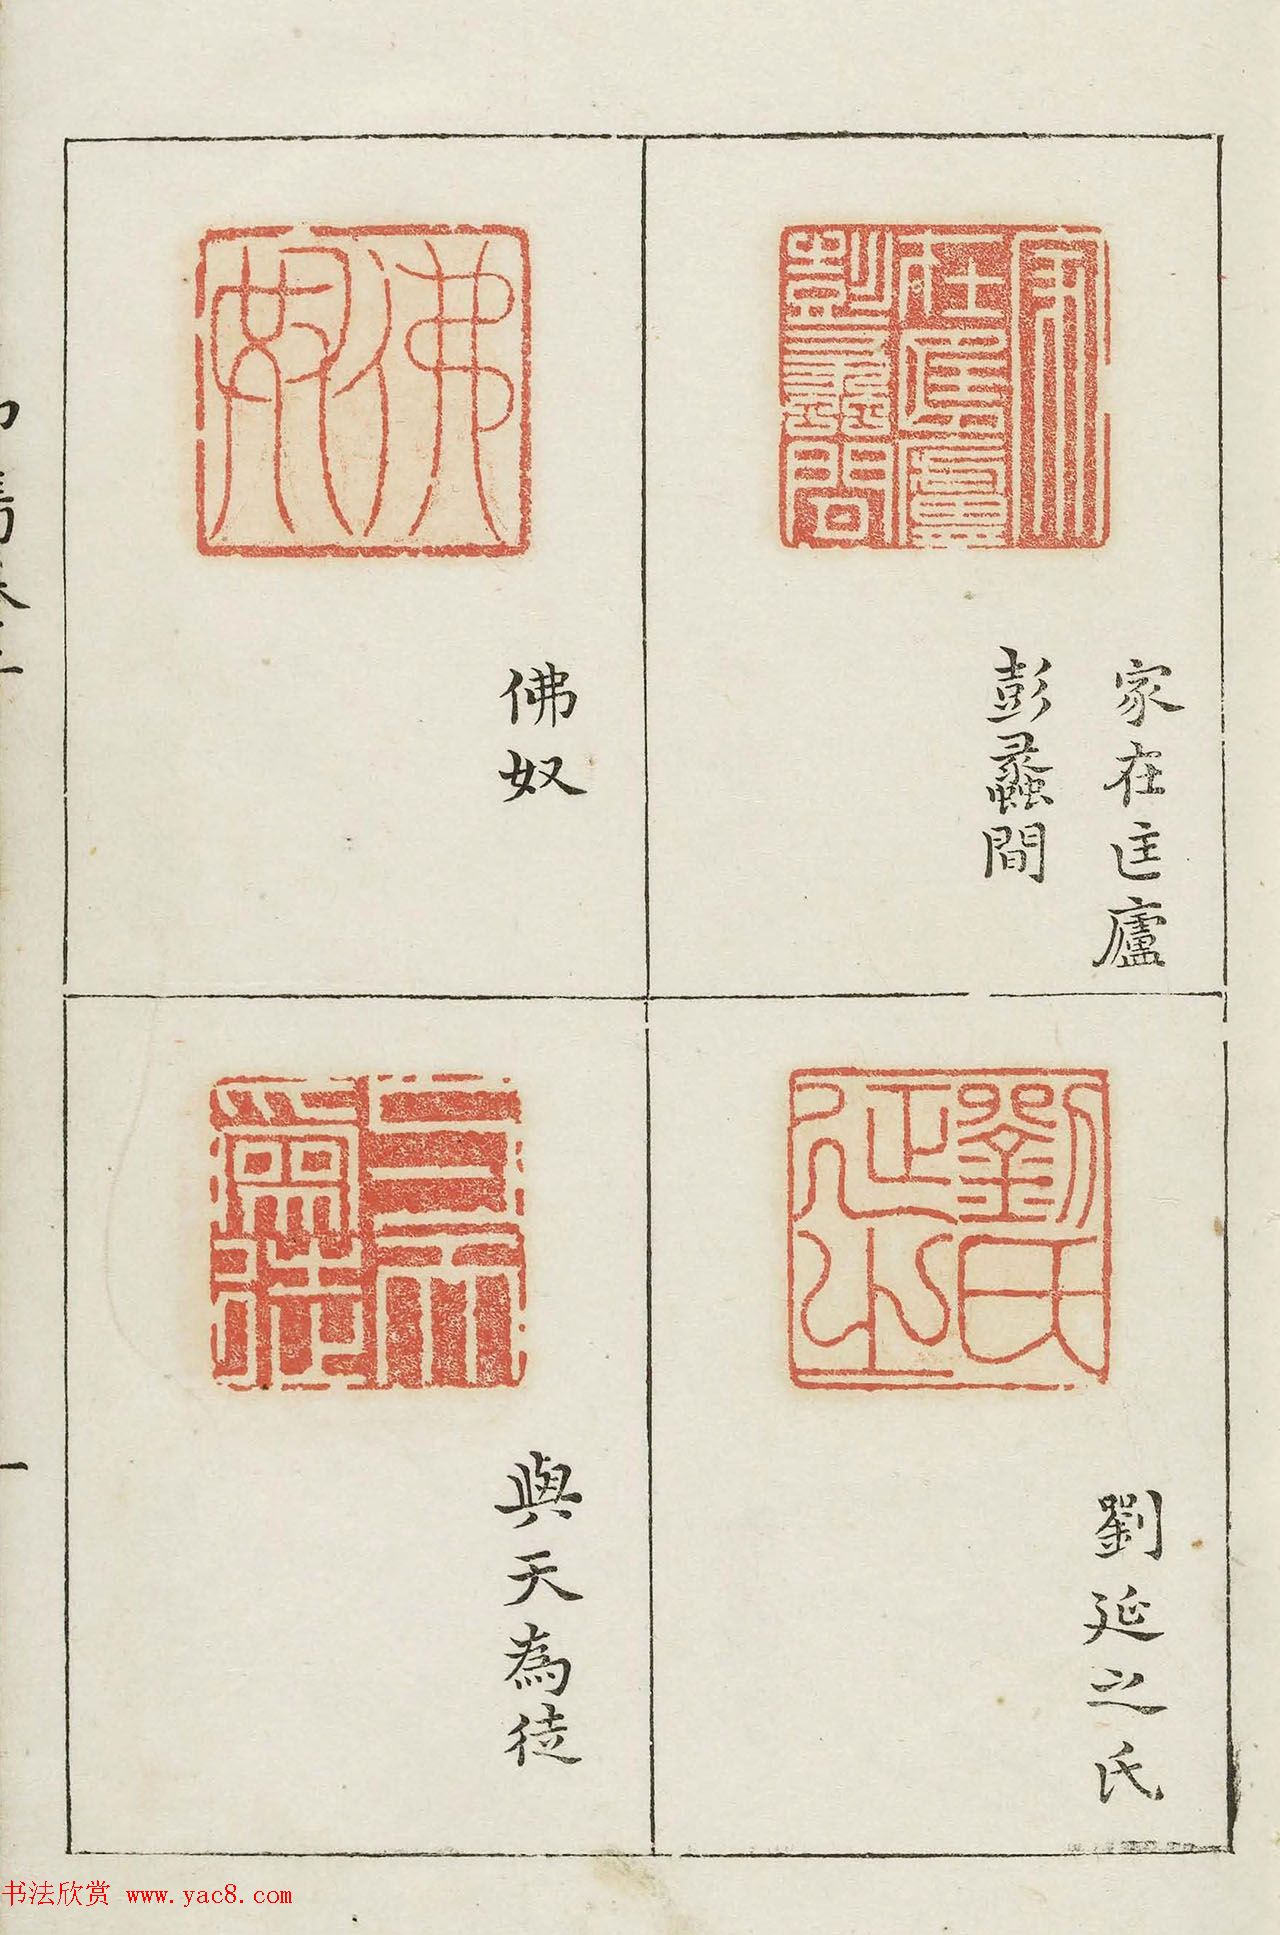 家在匡廬
彭蠡間
佛奴
劉延之氏
與天為徒
一
书法欣赏 www.yac8.com